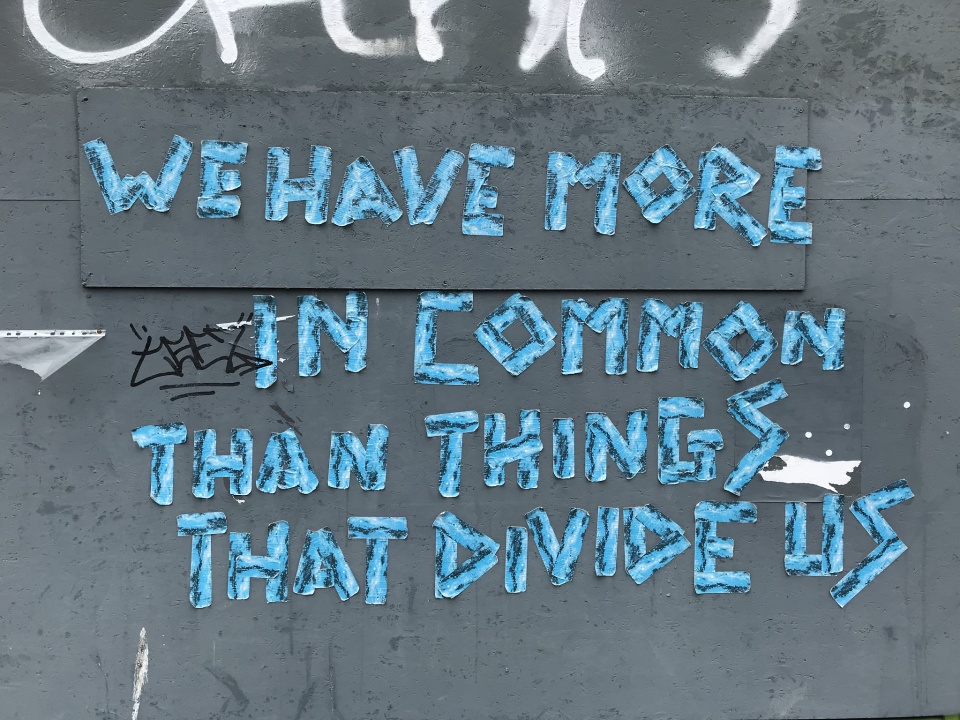 WE HAVE MORE
IN COMMON
THAN THINGS
THAT DIVIDE US